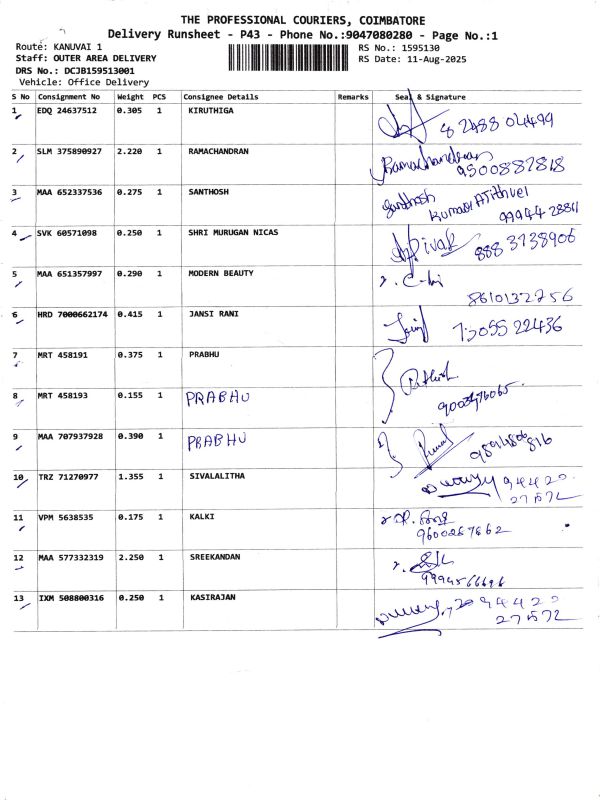 THE PROFESSIONAL COURIERS, COIMBATORE
Delivery Runsheet - P43 - Phone No.:9047080280 - Page No.:1
Route: KANUVAI 1
RS No.: 1595130
Staff: OUTER AREA DELIVERY
RS Date: 11-Aug-2025
DRS No.: DCJB159513001
Vehicle: Office Delivery
S No Consignment No Weight PCS Consignee Details Remarks Seal & Signature
1 EDQ 24637512 0.305 1 KIRUTHIGA 82488 04499
2 SLM 375890927 2.220 1 RAMACHANDRAN Ramachandran
9500887818
3 MAA 652337536 0.275 1 SANTHOSH Santhosh
Kumar
99944 28811
4 SVK 60571098 0.250 1 SHRI MURUGAN NICAS 888 3738906
5 MAA 651357997 0.290 1 MODERN BEAUTY
8610132756
6 HRD 7000662174 0.415 1 JANSI RANI 73055 22436
7 MRT 458191 0.375 1 PRABHU
8 MRT 458193 0.155 1 PRABHU
9 MAA 707937928 0.390 1 PRABHU
10 TRZ 71270977 1.355 1 SIVALALITHA 94420
27572
11 VPM 5638535 0.175 1 KALKI
9600267662
12 MAA 577332319 2.250 1 SREEKANDAN
9994566696
13 IXM 508800316 0.250 1 KASIRAJAN 94420
27572